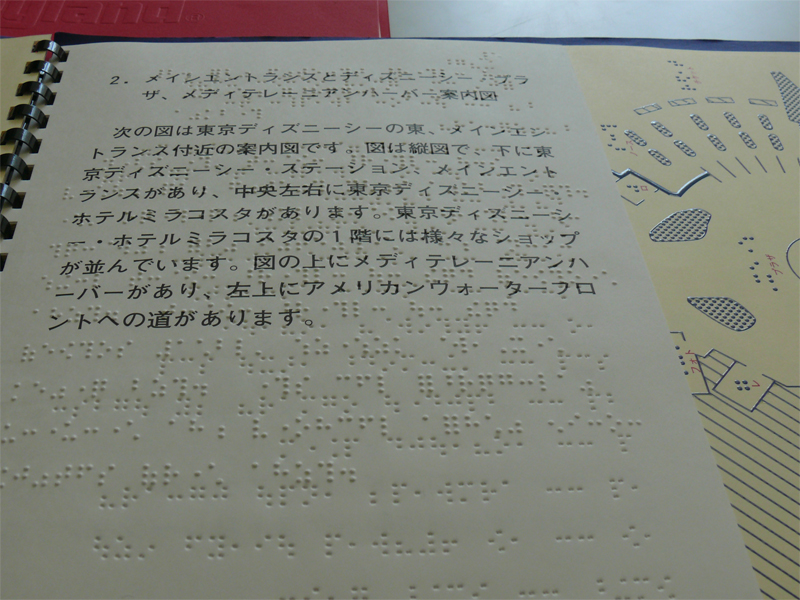 yland
2. メインエントランスとディズニーシー・プラ
ザ、メディテレーニアンハーバー案内図
次の図は東京ディズニーシーの東、メインエン
トランス付近の案内図です。図は縦図で、下に東
京ディズニーシー・ステーション、メインエント
ランスがあり、中央左右に東京ディズニーシー・
ホテルミラコスタがあります。東京ディズニーシ
ー・ホテルミラコスタの1階には様々なショップ
が並んでいます。図の上にメディテレーニアンハ
ーバーがあり、左上にアメリカンウォーターフロ
ントへの道があります。
プラザ
フォト
レ